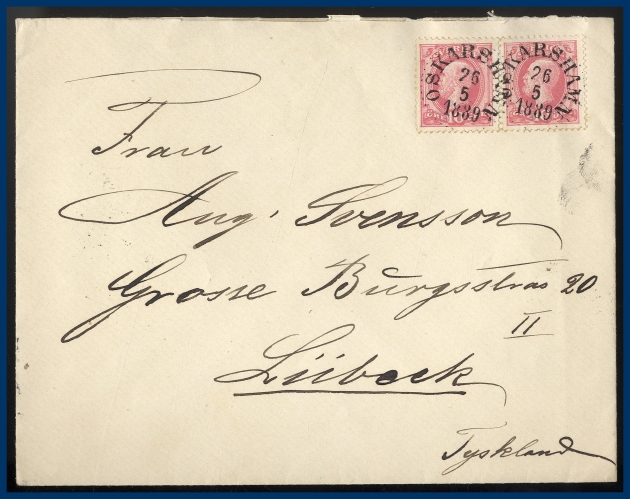 OSKARSHAMN
26
5
1889
OSKARSHAMN
26
5
1889
Frau
Aug. Svensson
Grosse Burgsstras 20
II
Lübeck
Tyskland